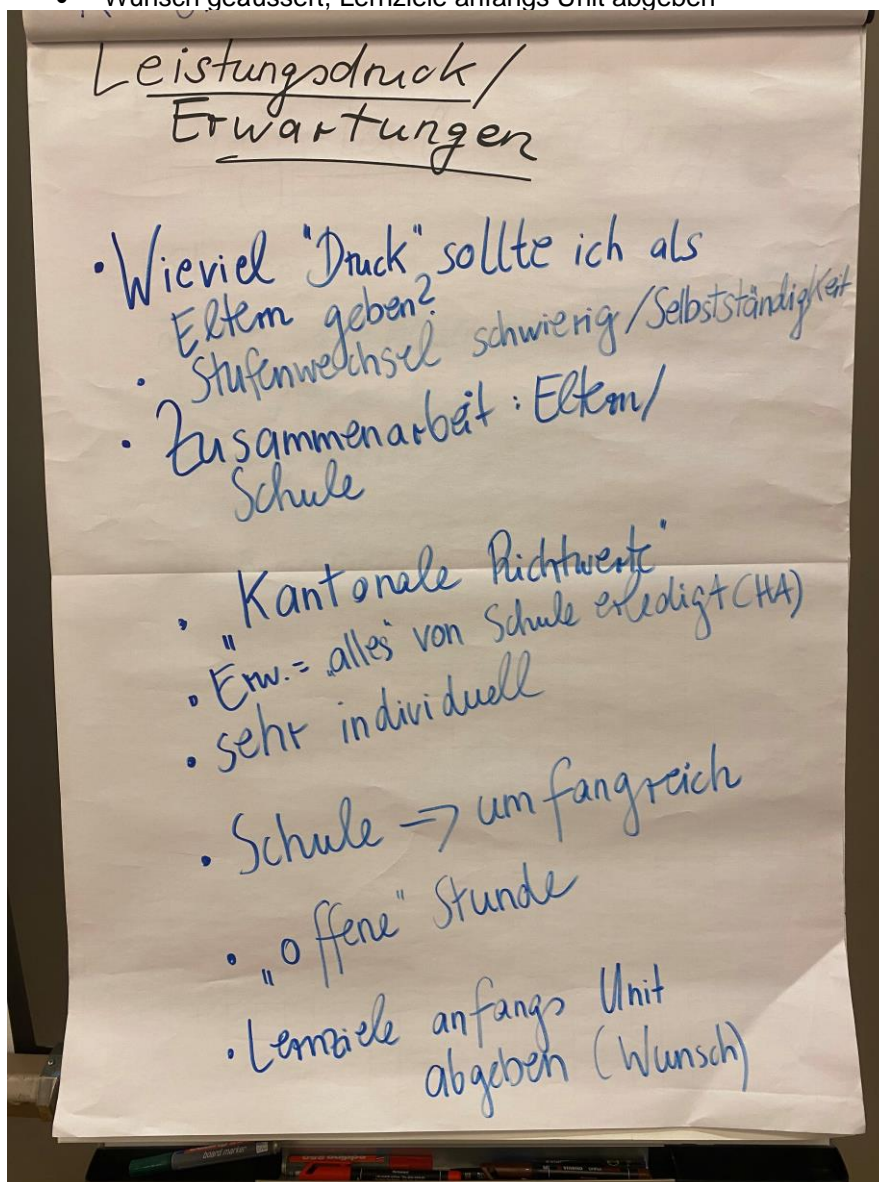 Wunsch geäussert, Lernziele anfangs Unit abgeben
Leistungsdruck/
Erwartungen
• Wieviel "Druck" sollte ich als
Eltern geben?
• Stufenwechsel schwierig/Selbstständigkeit
• Zusammenarbeit: Eltern/
Schule
• „Kantonale Richtwerte"
• Erw. = „alles" von Schule erledigt (HA)
• sehr individuell
• Schule => umfangreich
• „offene" Stunde
• Lernziele anfangs Unit
abgeben (Wunsch)
board marker